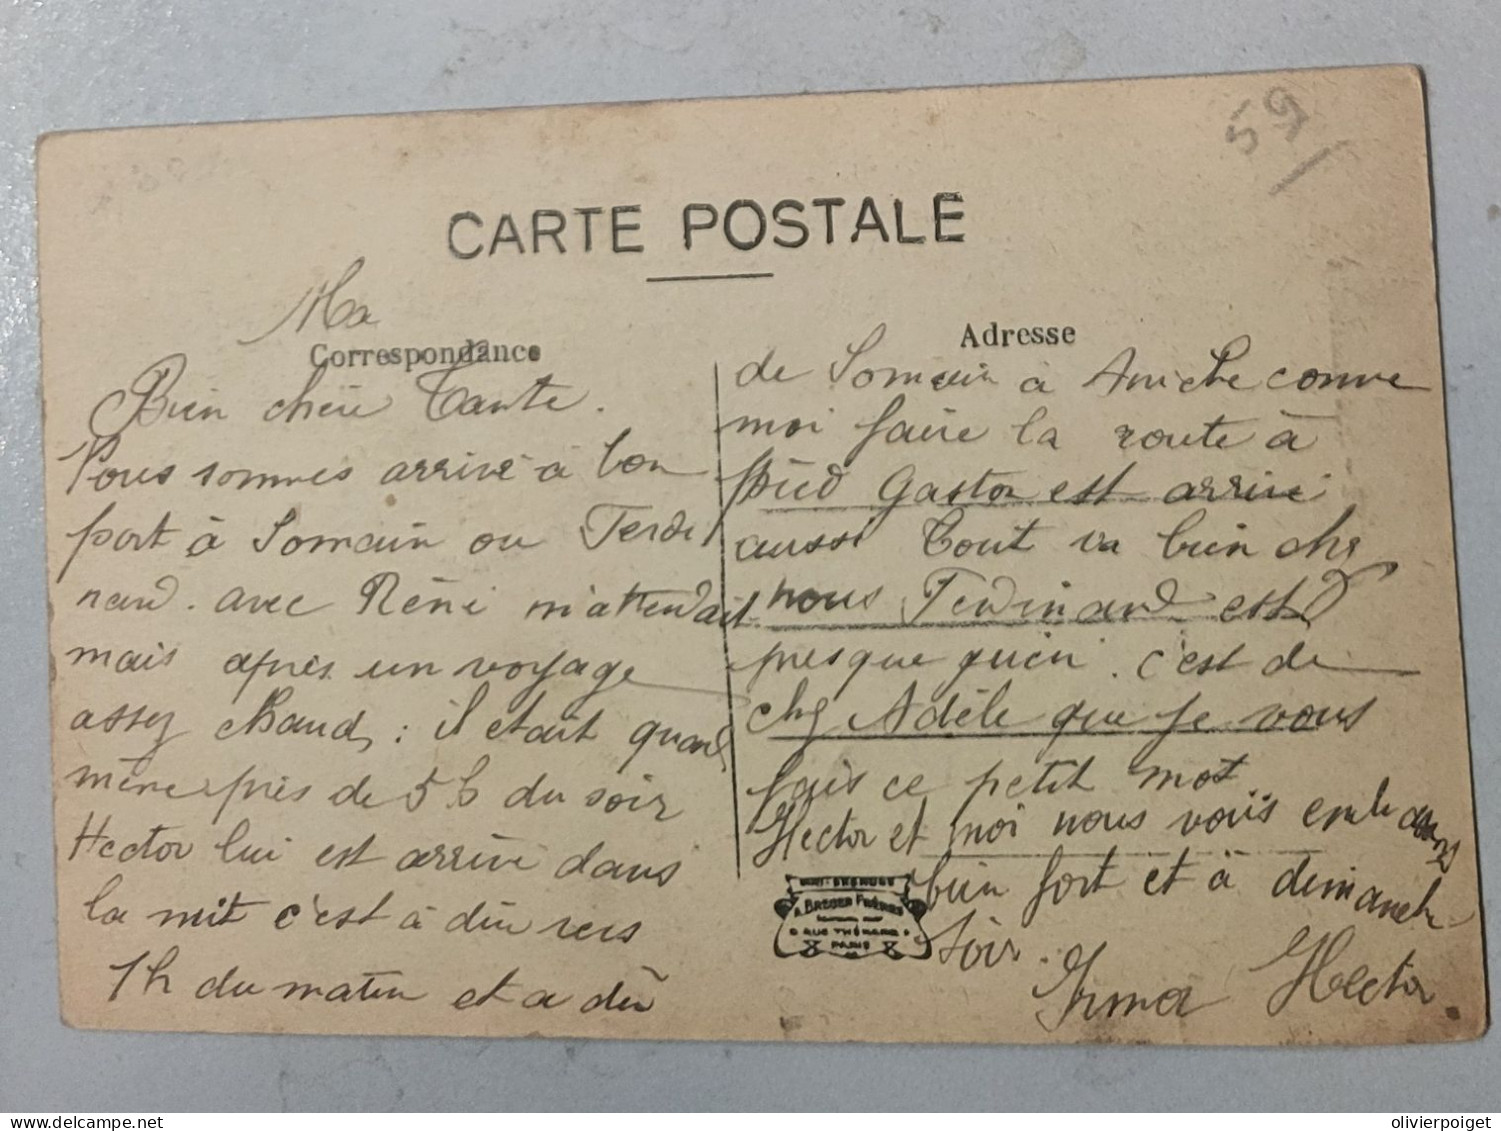 59
CARTE POSTALE
Ma
Correspondance
Bien chère Tante.
Nous sommes arrivé à bon
port à Somain ou Ferdi
nand. avec Réné m'attendait
mais après un voyage
assez chaud, : il était quand
même près de 5 h du soir
Hector lui est arrivé dans
la nuit c'est à dire vers
1h du matin et a dû
Adresse
de Somain à Aniche comme
moi faire la route à
pied Gaston est arrivé
aussi Tout va bien chez
nous Ferdinand est
presque guéri. c'est de
chez Adèle que je vous
fais ce petit mot
Hector et moi nous vous embrassons
bien fort et à dimanche
soir.
Irma Hector
A. BREGER FRÈRES
9 RUE THÉNARD 9
PARIS
olivierpoiget